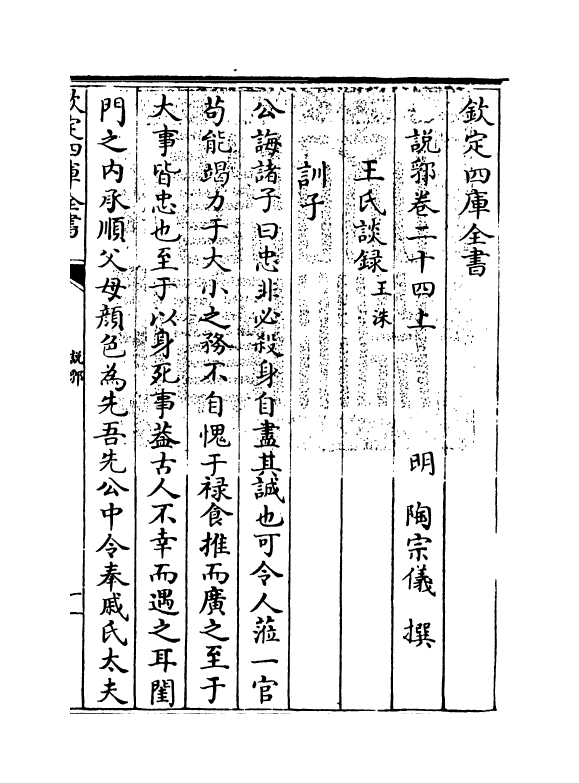 欽定四庫全書
說郛卷二十四上
明 陶宗儀 撰
王氏談録 王洙
訓子
公誨諸子曰忠非必殺身自盡其誠也可令人蒞一官
苟能竭力于大小之務不自愧于禄食推而廣之至于
大事皆忠也至于以身死事葢古人不幸而遇之耳閨
門之内承順父母顔色為先吾先公中令奉戚氏太夫
欽定四庫全書
說郛
一